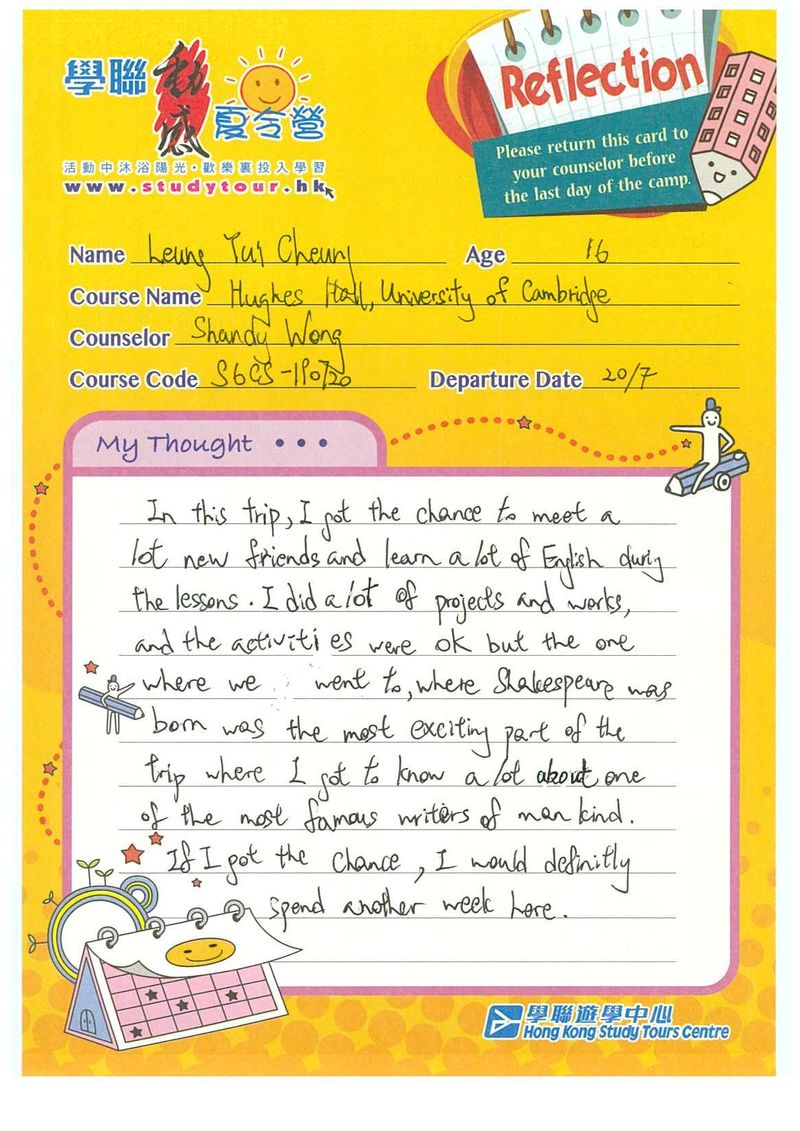 學聯動感夏令營
活動中沐浴陽光・歡樂裏投入學習
www.studytour.hk
Reflection
Please return this card to
your counselor before
the last day of the camp.
Name Leung Tui Cheung
Age 16
Course Name Hughes Hall, University of Cambridge
Counselor Shandy Wong
Course Code S6CS-110720
Departure Date 20/7
My Thought • • •
In this trip, I got the chance to meet a
lot new friends and learn a lot of English during
the lessons. I did a lot of projects and works,
and the activities were ok but the one
where we went to, where Shakespeare was
born was the most exciting part of the
trip where I got to know a lot about one
of the most famous writers of mankind.
If I got the chance, I would definitly
spend another week here.
學聯遊學中心
Hong Kong Study Tours Centre